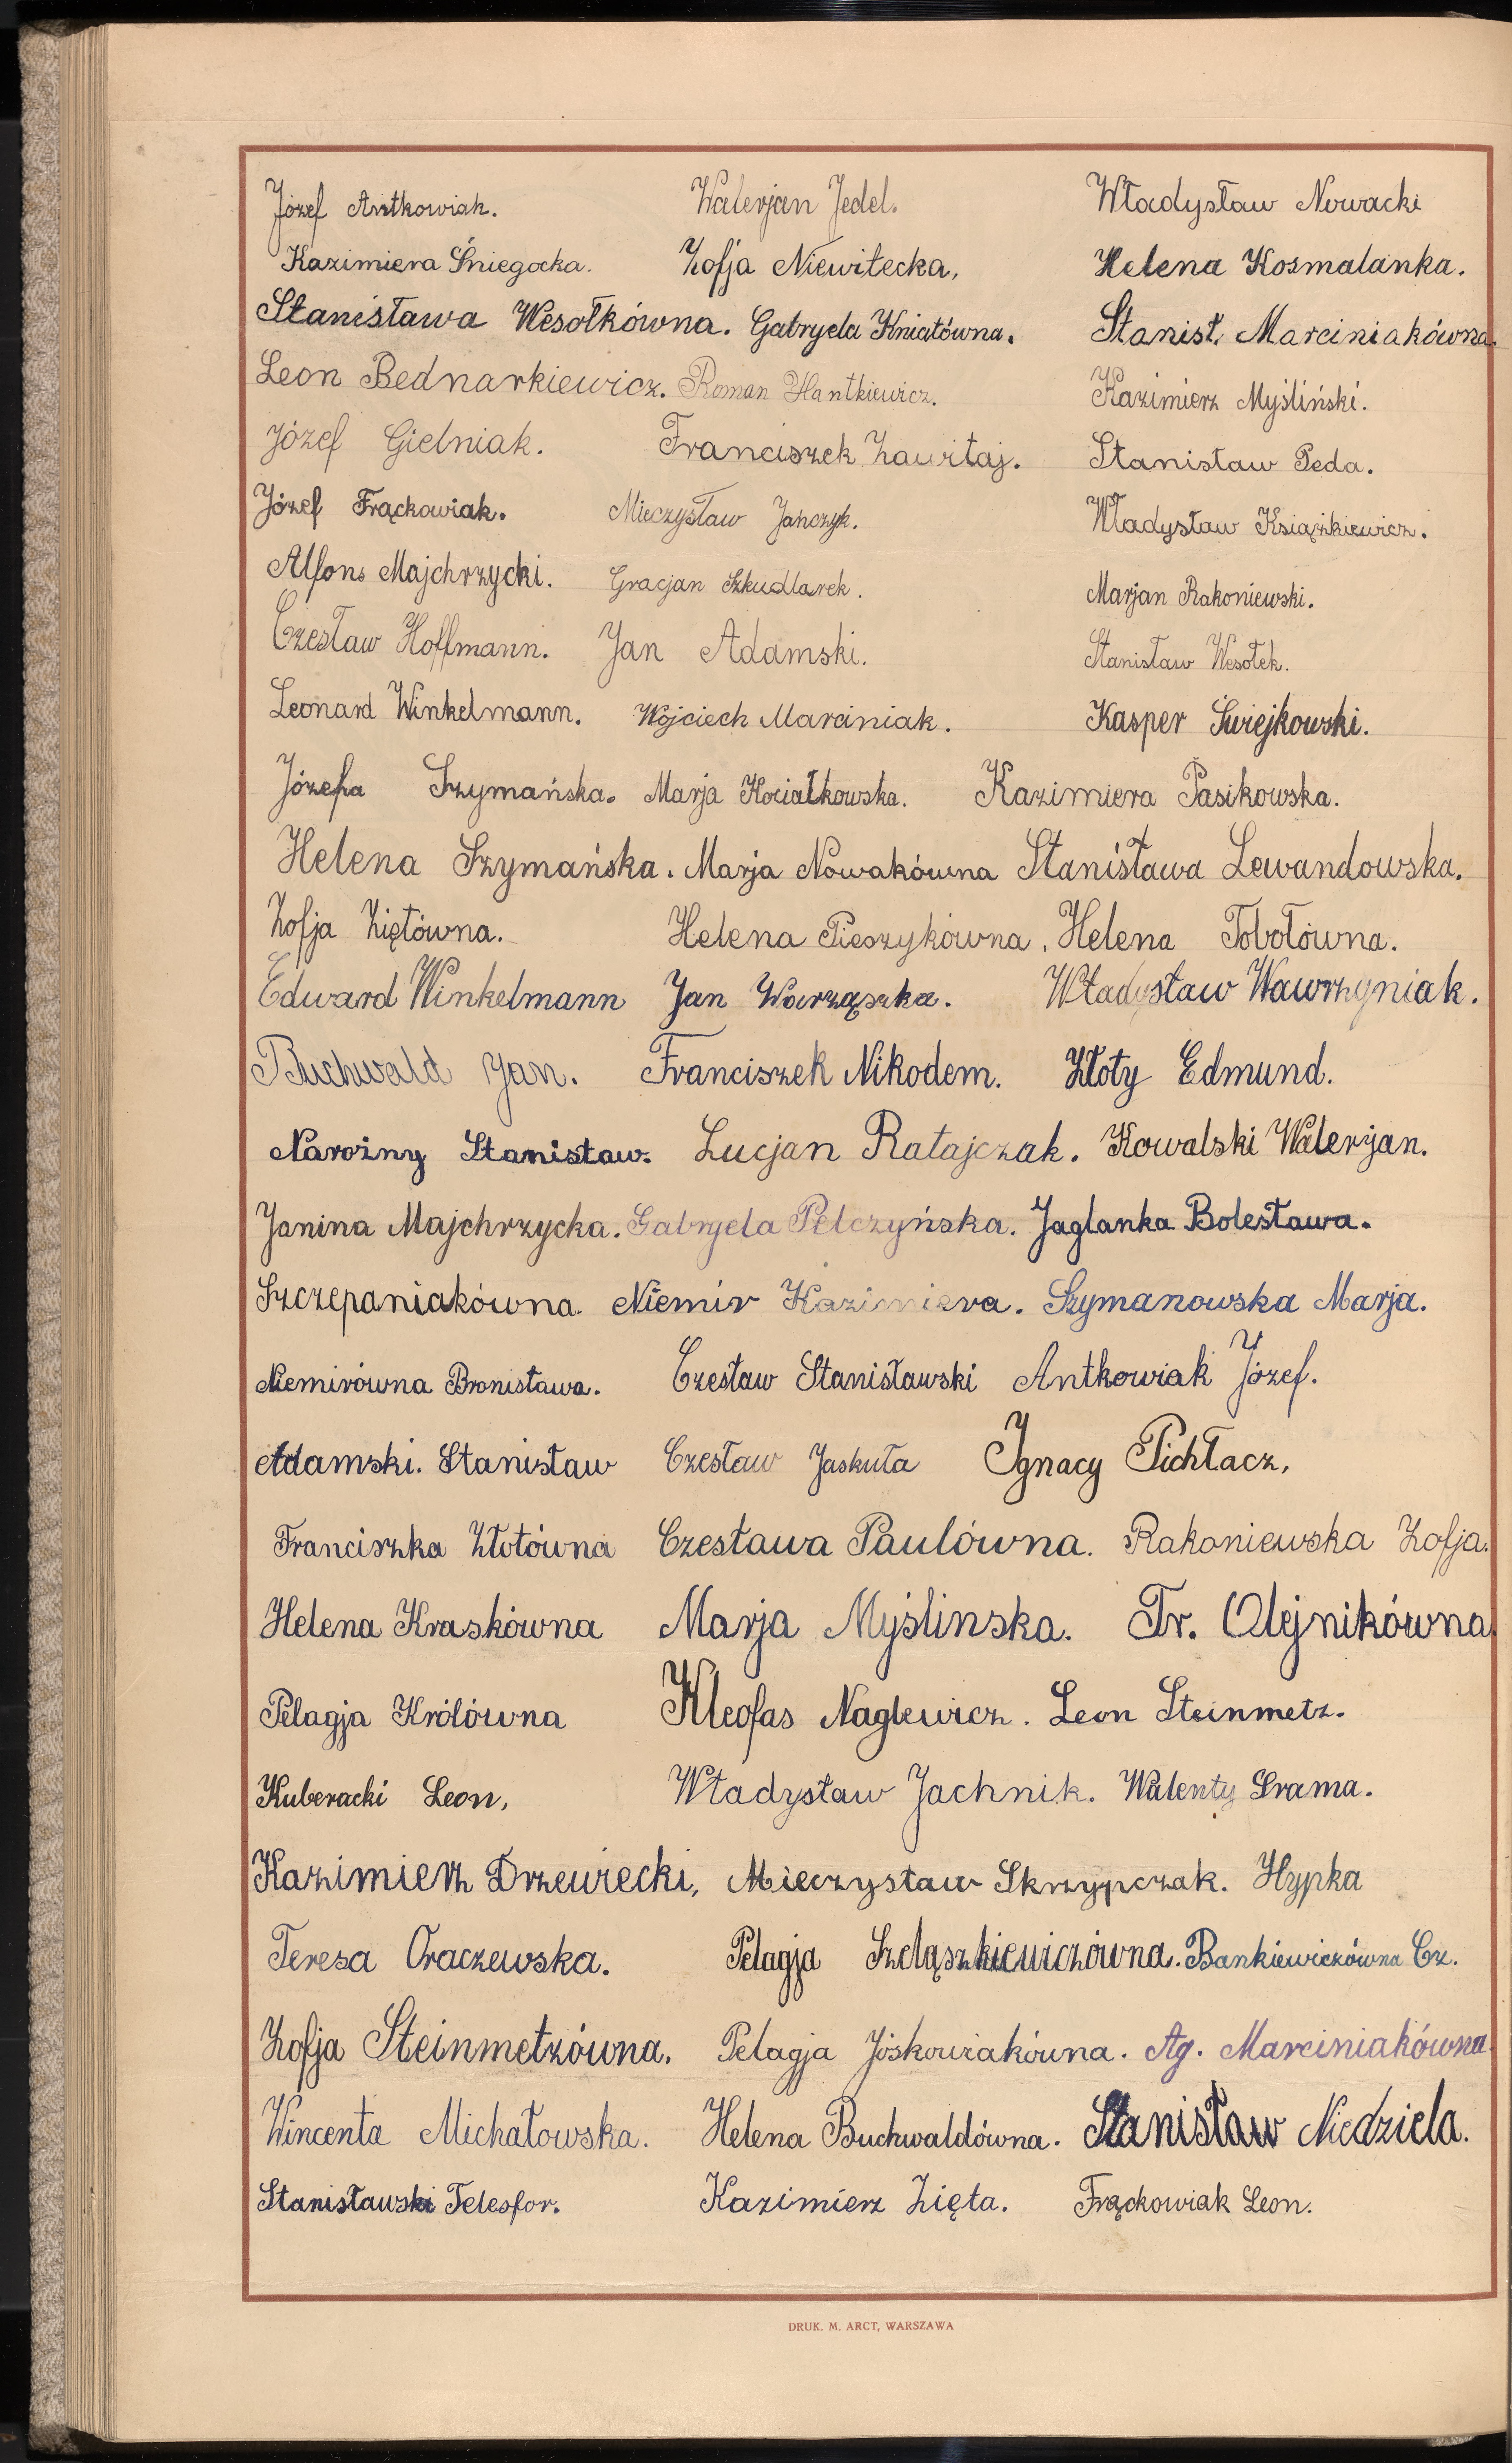 Józef Antkowiak. Walerjan Jedel. Władysław Nowacki
Kazimiera Śniegocka. Zofja Niewitecka, Helena Kosmalanka.
Stanisława Wesołkówna. Gabryela Kniatówna. Stanisł. Marciniakówna.
Leon Bednarkiewicz. Roman Hantkiewicz. Kazimierz Myśliński.
Józef Gielniak. Franciszek Zawitaj. Stanisław Peda.
Józef Frąckowiak. Mieczysław Jańczyk. Władysław Książkiewicz.
Alfons Majchrzycki. Gracjan Szkudlarek. Marjan Rakoniewski.
Czesław Hoffmann. Jan Adamski. Stanisław Wesołek.
Leonard Winkelmann. Wojciech Marciniak. Kasper Świejkowski.
Józefa Szymańska. Marja Kociałkowska. Kazimiera Pasikowska.
Helena Szymańska. Marja Nowakówna Stanisława Lewandowska.
Zofja Ziętówna. Helena Pieszykówna, Helena Tobołówna.
Edward Winkelmann Jan Warząszka. Władysław Wawrzyniak.
Buchwald Jan. Franciszek Nikodem. Złoty Edmund.
Narożny Stanisław. Lucjan Ratajczak. Kowalski Walerjan.
Janina Majchrzycka. Gabryela Pelczyńska. Jaglanka Bolesława.
Szczepaniakówna. Niemir Kazimiera. Szymanowska Marja.
Niemirówna Bronisława. Czesław Stanisławski Antkowiak Józef.
Adamski. Stanisław Czesław Jaskuła Ignacy Pichłacz,
Franciszka Złotówna Czesława Paulówna. Rakoniewska Zofja.
Helena Kraskówna Marja Myślinska. Fr. Olejnikówna.
Pelagja Królówna Kleofas Naglewicz. Leon Steinmetz.
Kuberacki Leon, Władysław Jachnik. Walenty Srama.
Kazimierz Drzewiecki, Mieczysław Skrzypczak. Hypka
Teresa Oraczewska. Pelagja Szeląszkiewiczówna. Bankiewiczówna Cz.
Zofja Steinmetzówna. Pelagja Jóskowiakówna. Ag. Marciniakówna
Wincenta Michałowska. Helena Buchwaldówna. Stanisław Niedziela.
Stanisławski Telesfor. Kazimierz Zięta. Frąckowiak Leon.
DRUK. M. ARCT, WARSZAWA